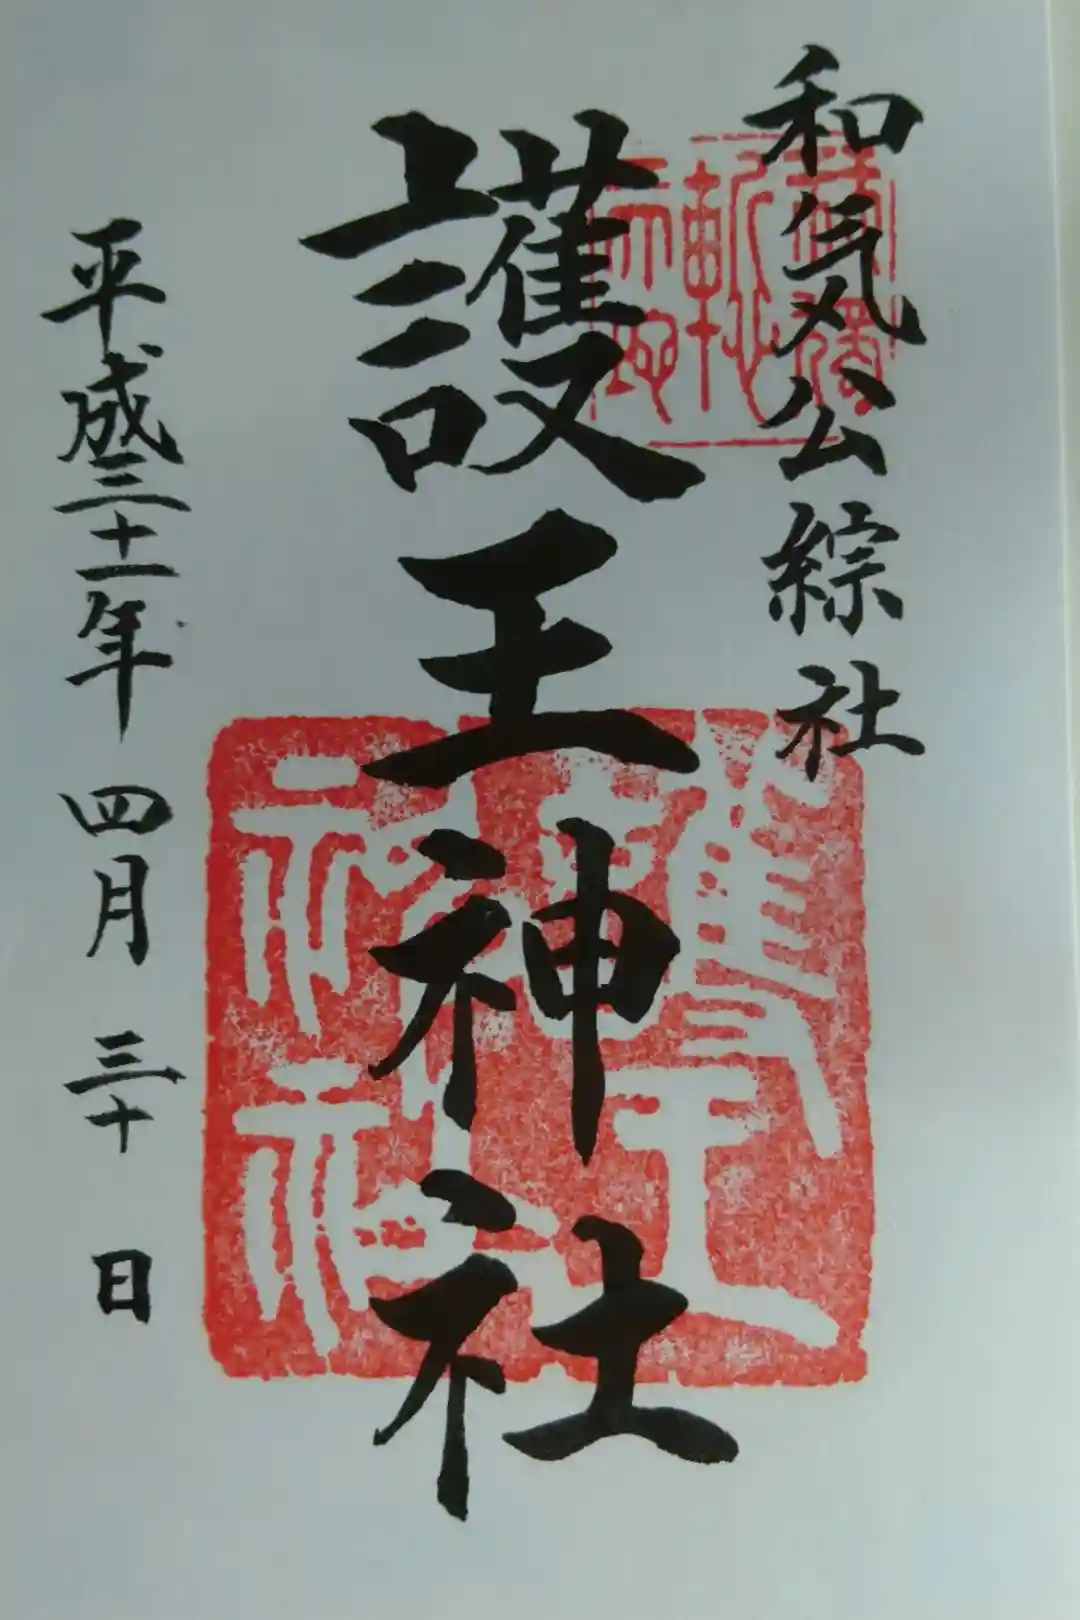 和気公綜社
護王神社
平成三十一年 四月 三十 日
護王
神社